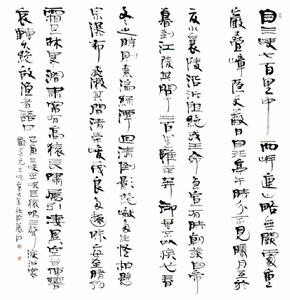 自三峡七百里中兩岸連山略無闕處重
巖疊嶂隱天蔽日自非亭午時分不見曦月至於
夏水襄陵沿泝阻絶或王命急宣有時朝發白帝
暮到江陵其間千二百里雖乘奔御風不以疾也春
冬之時則素湍綠潭回清倒影絶巘多生怪柏懸
泉瀑布飛漱其間清榮峻茂良多趣味每至晴初
霜旦林寒澗肅常有高猿長嘯屬引凄異空谷傳響
哀轉久絶故漁者歌曰巴東三峡巫峡長猿鳴三聲淚沾裳